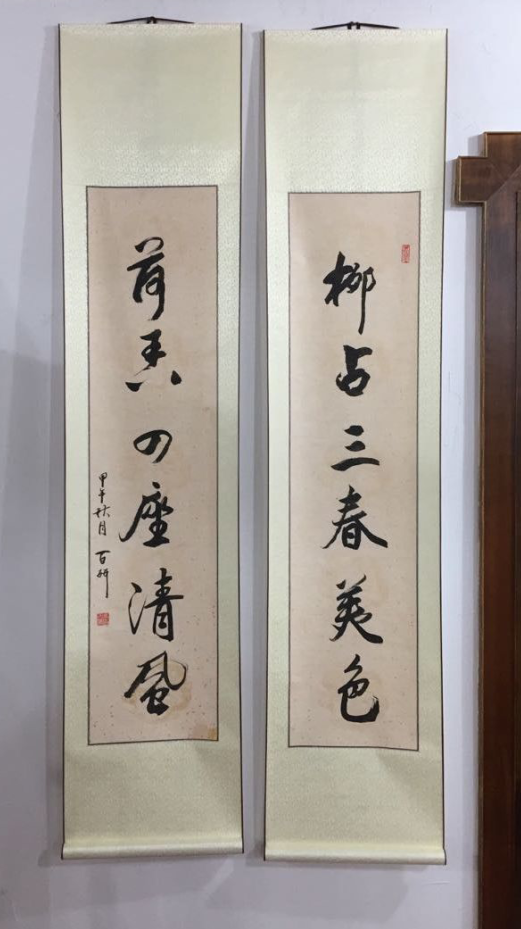 柳占三春美色
荷香四座清風
甲午秋月 百研